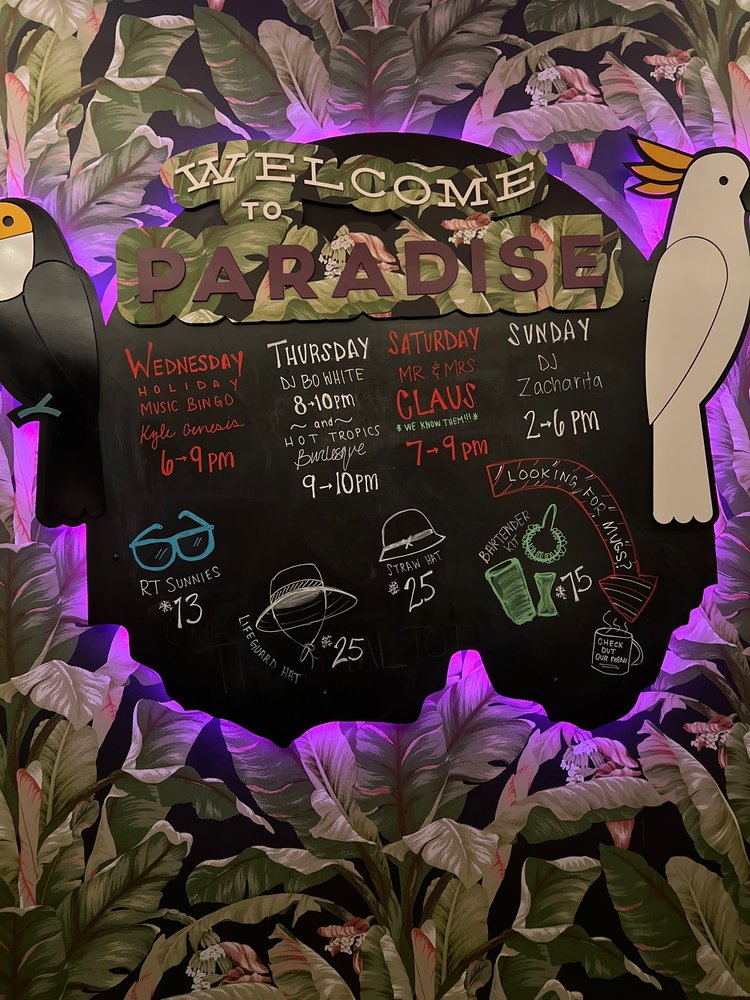 WELCOME
TO
PARADISE
WEDNESDAY
HOLIDAY
MUSIC BINGO
Kyle Genesis
6→9pm
THURSDAY
DJ BO WHITE
8→10pm
~and~
HOT TROPICS
Burlesque
9→10pm
SATURDAY
MR & MRS
CLAUS
*WE KNOW THEM!!!*
7→9pm
SUNDAY
DJ
Zacharita
2→6pm
RT SUNNIES
$13
LIFEGUARD HAT
$25
STRAW HAT
$25
BARTENDER
KIT
$75
LOOKING FOR MUGS?
CHECK
OUT
OUR MENU